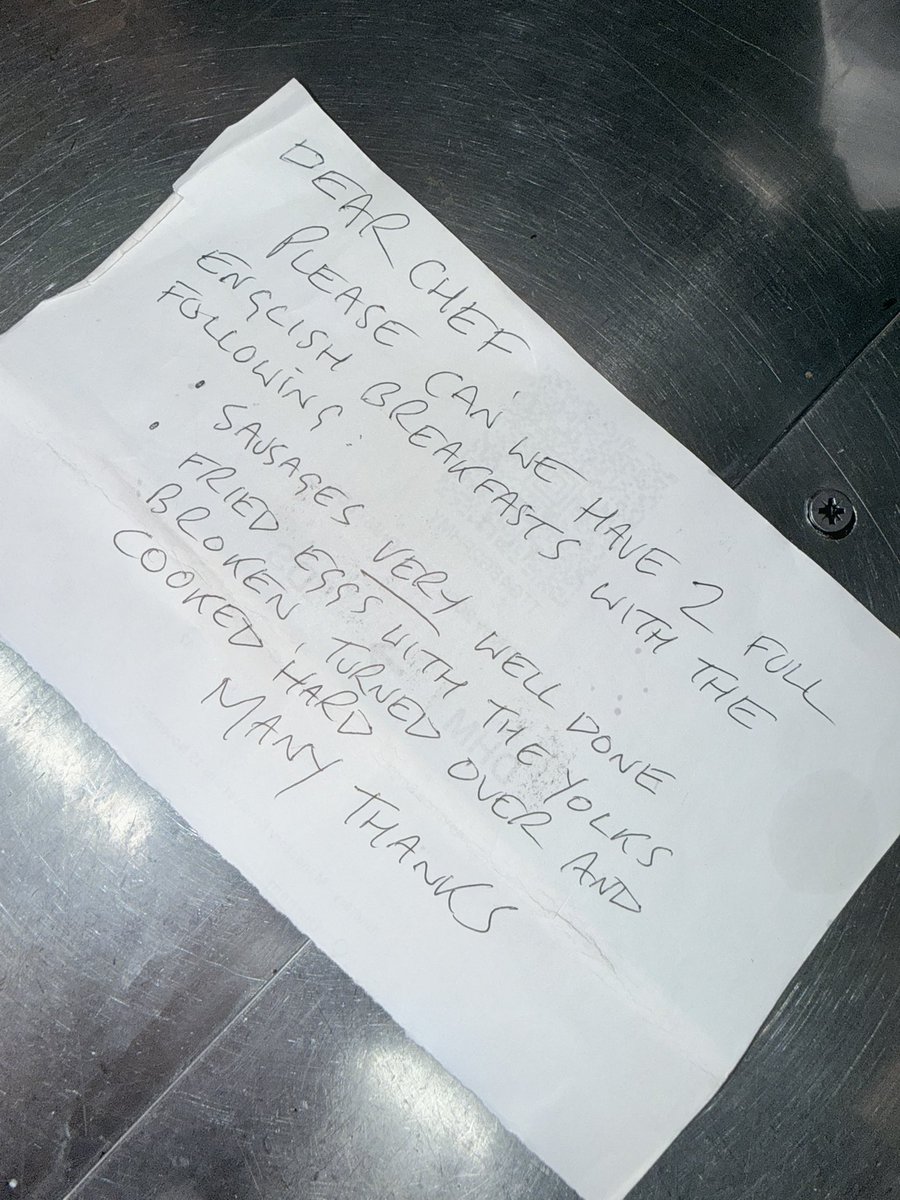 DEAR CHEF
PLEASE CAN WE HAVE 2 FULL
ENGLISH BREAKFASTS WITH THE
FOLLOWING:
• SAUSAGES VERY WELL DONE
• FRIED EGGS WITH THE YOLKS
BROKEN, TURNED OVER AND
COOKED HARD
MANY THANKS